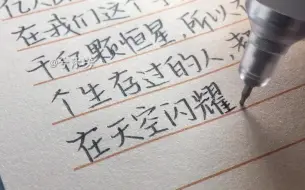 在我们这个
千亿颗恒星,所以
个生存过的人,都
在天空闪耀